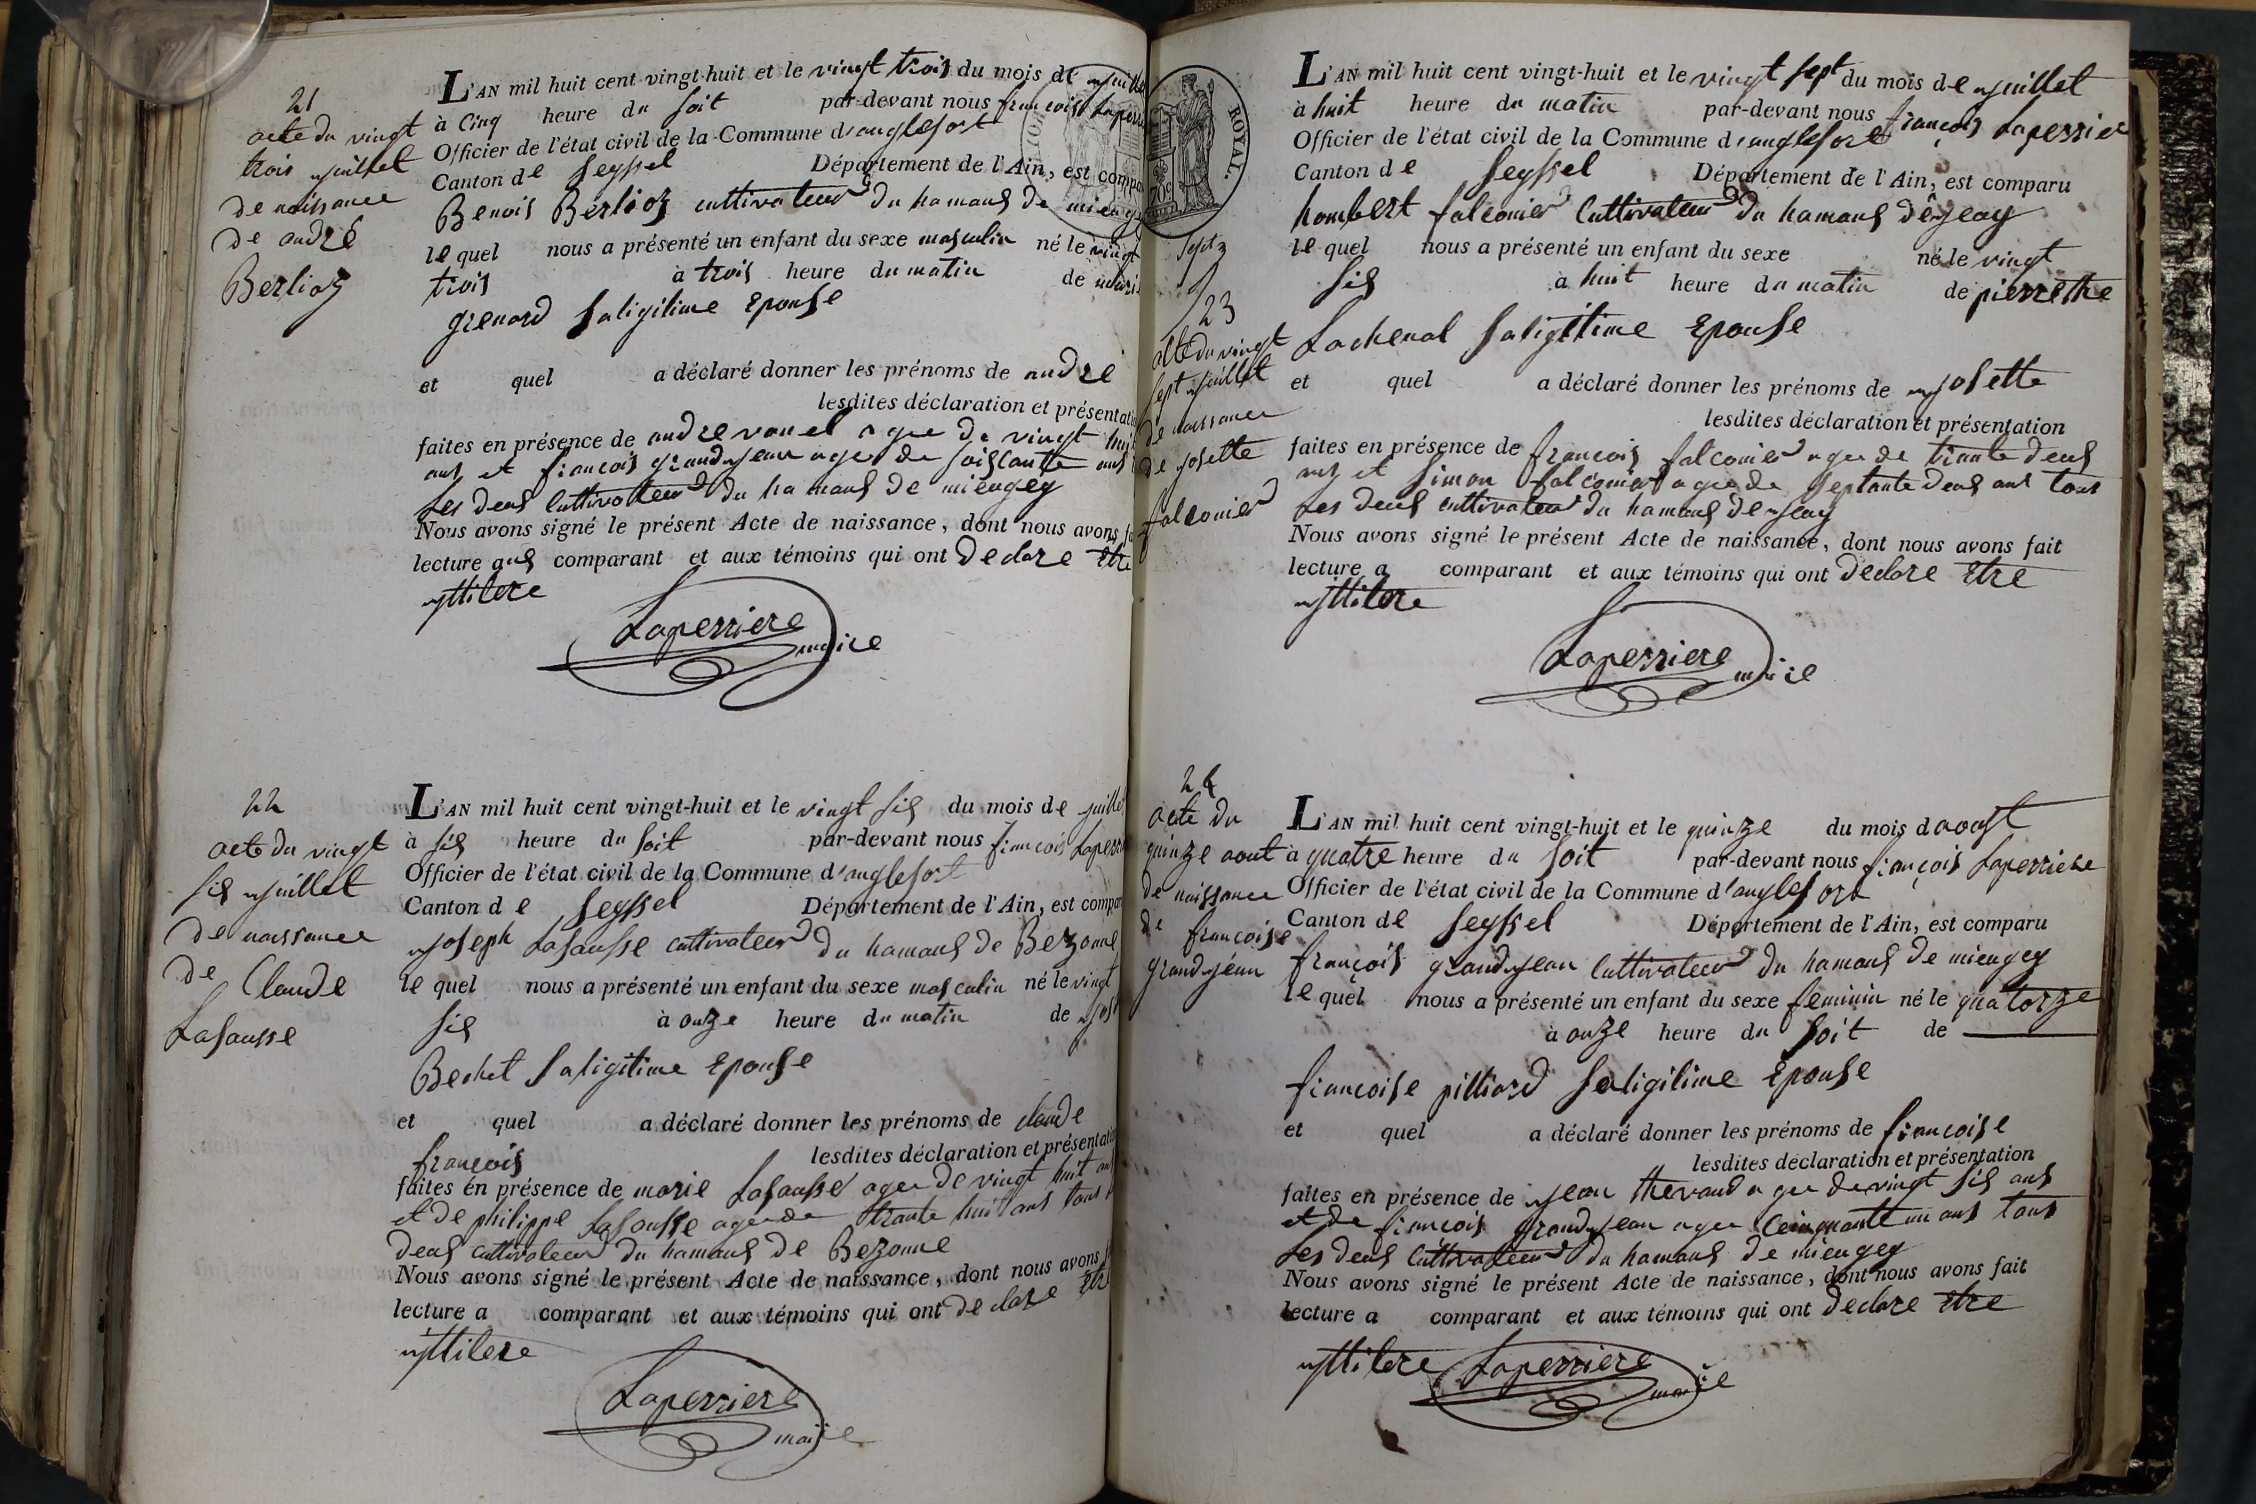 21
acte du vingt
trois juillet
de naissance
de andré
Berlioz
L'AN mil huit cent vingt-huit et le vingt trois du mois de juillet
à Cinq heure du soit par-devant nous françois Laperri
Officier de l'état civil de la Commune d'anglefort
Canton de Seyssel Département de l'Ain, est compa
Benois Berlioz cultivateur du hamaus de miengey
lequel nous a présenté un enfant du sexe masculin né le vingt
trois à trois heure du matin de marie
grenard saligitime Epouse
et quel a déclaré donner les prénoms de andre
lesdites déclaration et présentation
faites en présence de andre vanel agee de vingt huit
ans et françois grandjean agee de soiscante ans
les deus cultivateur du hamaus de miengey
Nous avons signé le présent Acte de naissance, dont nous avons fa
lecture aus comparant et aux témoins qui ont declare Etre
jllitere
Laperriere
maire
22
acte du vingt
sis juillet
de naissance
de Claude
Lasausse
L'AN mil huit cent vingt-huit et le vingt sis du mois de juillet
à sis heure du soit par-devant nous françois Laperri
Officier de l'état civil de la Commune d'anglefort
Canton de Seyssel Département de l'Ain, est compar
joseph Lasausse cultivateur du hamaus de Bezonne
lequel nous a présenté un enfant du sexe masculin né le vingt
sis à onze heure du matin de jos
Bechet saligitime Epouse
et quel a déclaré donner les prénoms de claude
françois lesdites déclaration et présentation
faites en présence de marie Lasausse agee de vingt huit ans
et de philippe Lasausse agee de trante huit ans tous
deus cultivateur du hamaus de Bezonne
Nous avons signé le présent Acte de naissance, dont nous avons f
lecture a comparant et aux témoins qui ont declare Etre
jllitere
Laperriere
maire
ROYAL.
23
acte du vingt
sept juillet
de naissance
de josette
falconier
L'AN mil huit cent vingt-huit et le vingt sept du mois de juillet
à huit heure du matin par-devant nous françois Laperrier
Officier de l'état civil de la Commune d'anglefort
Canton de Seyssel Département de l'Ain, est comparu
hombert falconier Cultivateur du hamaus de jeay
lequel nous a présenté un enfant du sexe né le vingt
sis à huit heure du matin de pierrethe
Lachenal saligitime Epouse
et quel a déclaré donner les prénoms de josette
lesdites déclaration et présentation
faites en présence de françois falconier agee de trante deus
ans et simon falconier agee de septante deus ans tous
les deus cultivateur du hamaus de jeay
Nous avons signé le présent Acte de naissance, dont nous avons fait
lecture a comparant et aux témoins qui ont declare Etre
jllitere
Laperriere
maire
24
acte du
quinze aout
de naissance
de françoise
grandjean
L'AN mil huit cent vingt-huit et le quinze du mois d aoust
à quatre heure du soit par-devant nous françois Laperriere
Officier de l'état civil de la Commune d'anglefort
Canton de Seyssel Département de l'Ain, est comparu
françois grandjean Cultivateur du hamaus de miengey
lequel nous a présenté un enfant du sexe feminin né le quatorze
à onze heure du soit de
françoise pilliard saligitime Epouse
et quel a déclaré donner les prénoms de françoise
lesdites déclaration et présentation
faites en présence de jean thevand agee de vingt sis ans
et de françois grandjean agee Ceinquante un ans tous
les deus Cultivateur du hamaus de miengey
Nous avons signé le présent Acte de naissance, dont nous avons fait
lecture a comparant et aux témoins qui ont declare Etre
jllitere
Laperriere
maire